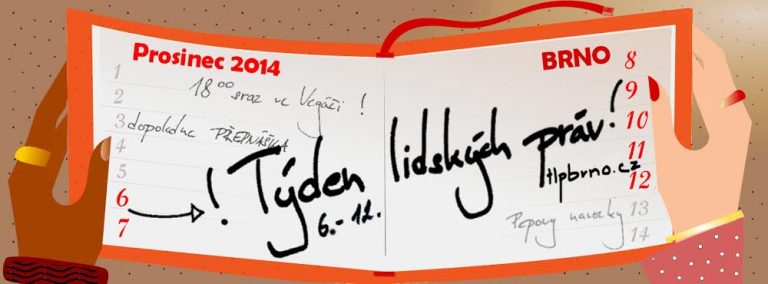 Prosinec 2014
1
2
18 00 sraz ve Vegáči !
3
dopoledne PŘEDNÁŠKA
4
5
6
7
! Týden lidských práv!
6.-12.
tlpbrno.cz
BRNO
8
9
10
11
12
13
14